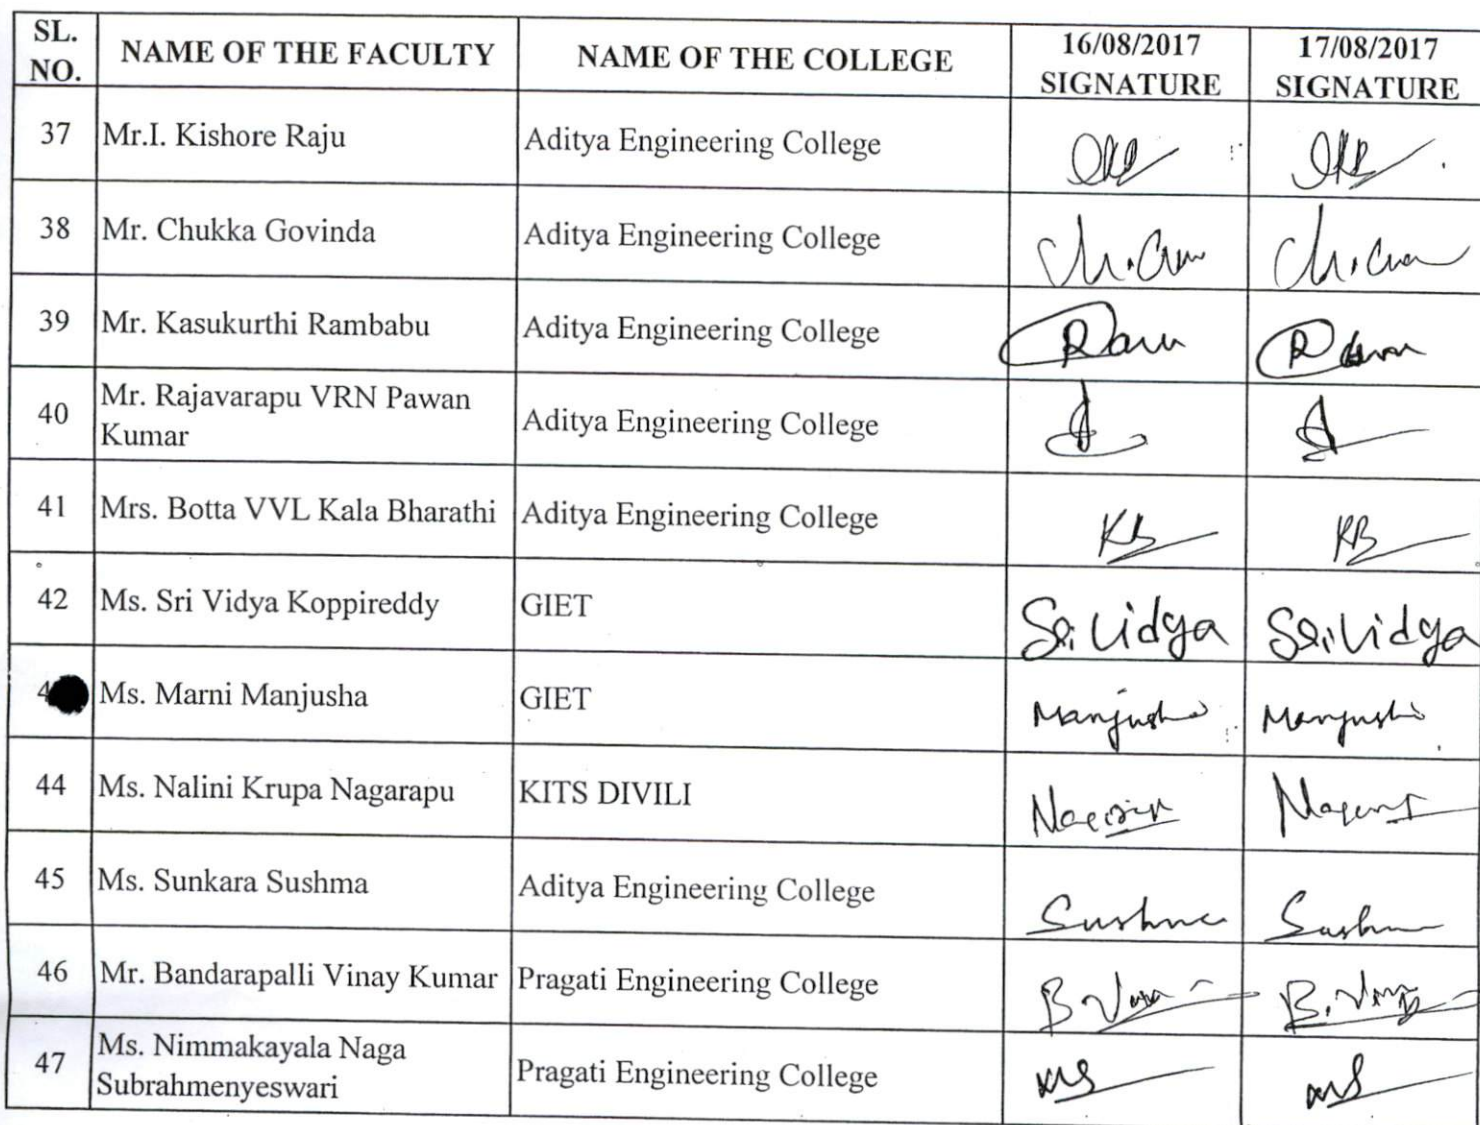 SL. NO. NAME OF THE FACULTY NAME OF THE COLLEGE 16/08/2017 SIGNATURE 17/08/2017 SIGNATURE
37 Mr.I. Kishore Raju Aditya Engineering College
38 Mr. Chukka Govinda Aditya Engineering College
39 Mr. Kasukurthi Rambabu Aditya Engineering College
40 Mr. Rajavarapu VRN Pawan
Kumar Aditya Engineering College
41 Mrs. Botta VVL Kala Bharathi Aditya Engineering College KB KB
42 Ms. Sri Vidya Koppireddy GIET Sri Vidya Sri Vidya
4 Ms. Marni Manjusha GIET Manjusha Manjusha
44 Ms. Nalini Krupa Nagarapu KITS DIVILI
45 Ms. Sunkara Sushma Aditya Engineering College Sushma Sushma
46 Mr. Bandarapalli Vinay Kumar Pragati Engineering College
47 Ms. Nimmakayala Naga
Subrahmenyeswari Pragati Engineering College